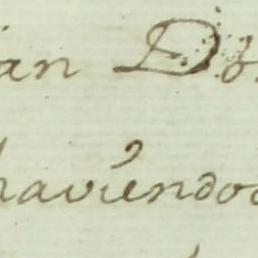 an Do
haviendo